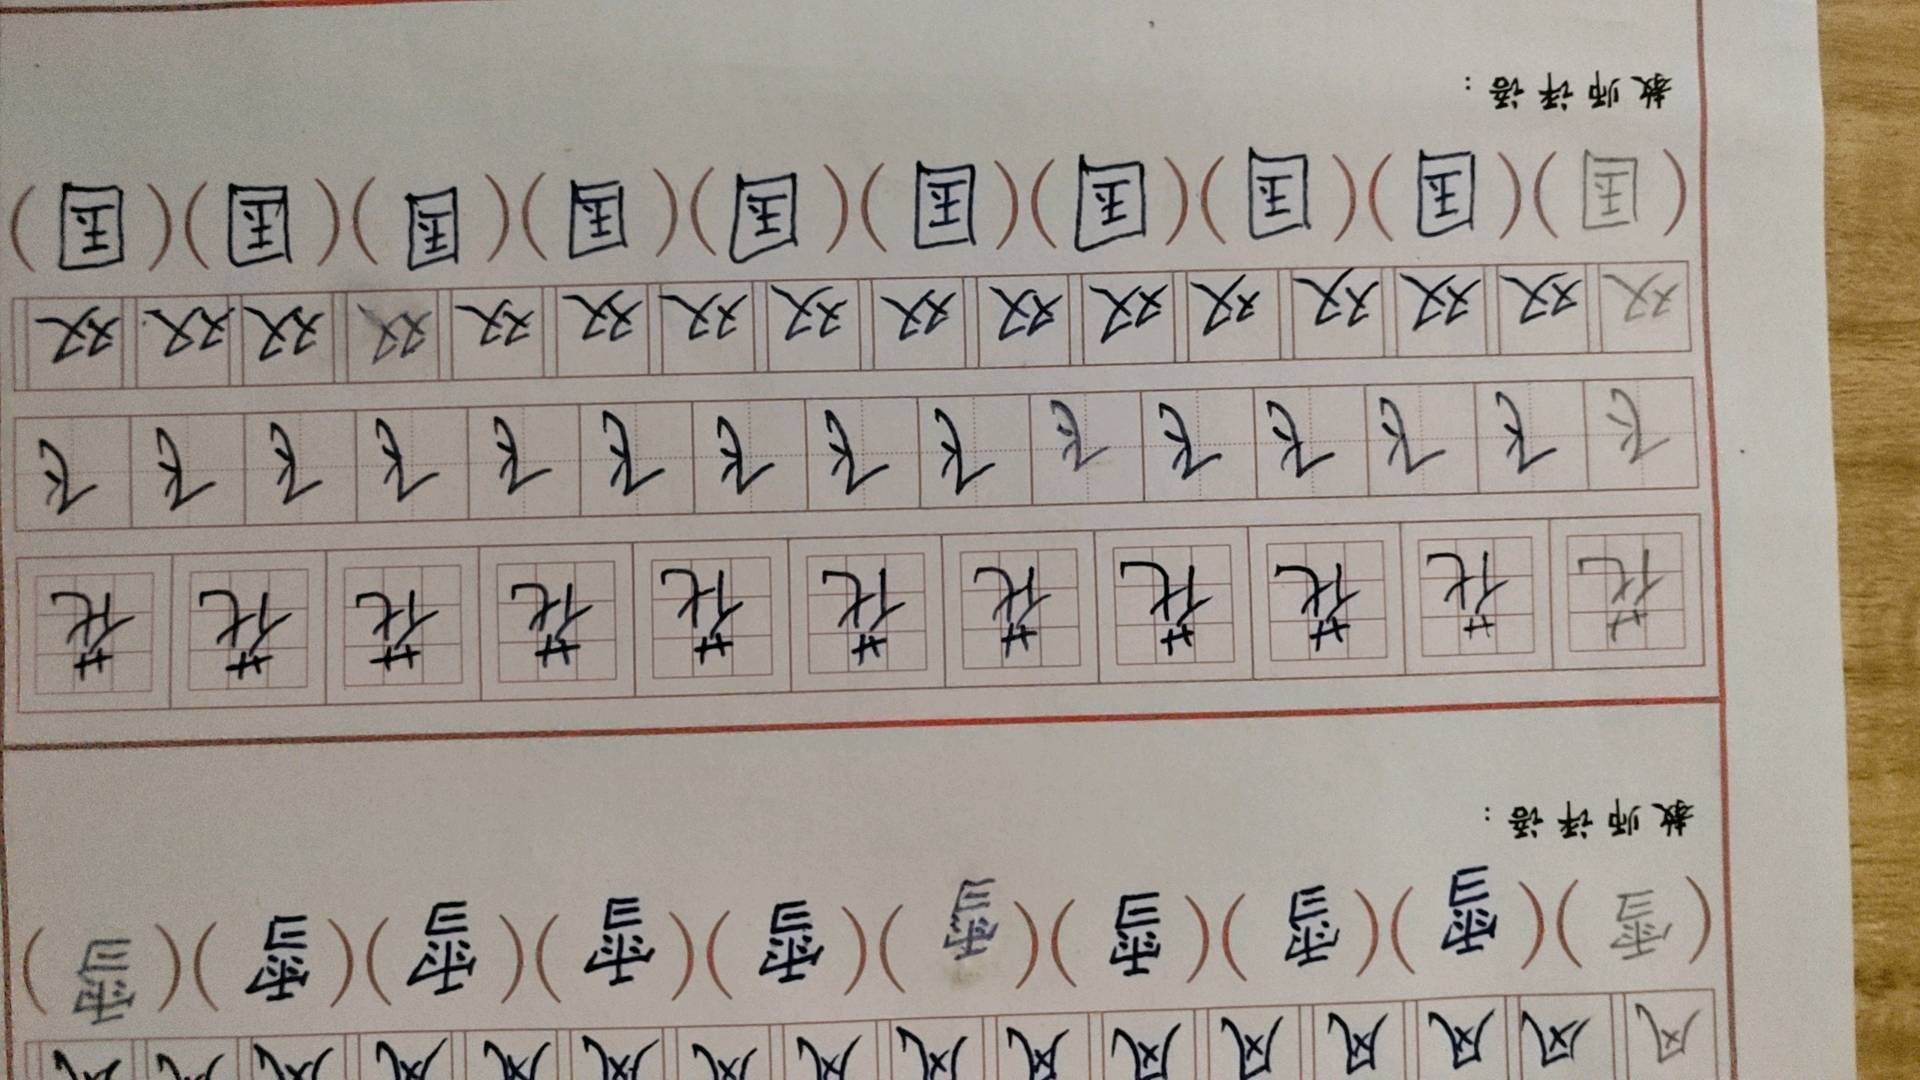 风风风风风风风风风风风风风风风风
(雪)(雪)(雪)(雪)(雪)(雪)(雪)(雪)(雪)(雪)
教师评语:
花花花花花花花花花花花
飞飞飞飞飞飞飞飞飞飞飞飞飞飞飞
双双双双双双双双双双双双双双双双
(国)(国)(国)(国)(国)(国)(国)(国)(国)(国)
教师评语: